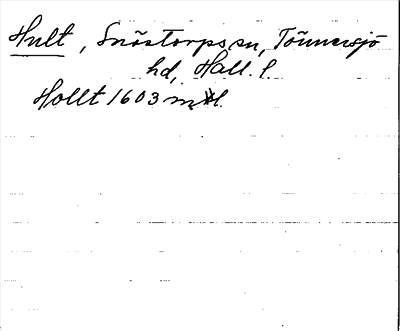 Hult, Snöstorps sn, Tönnersjö
hd, Hall. l.
Hollt 1603 mtl.